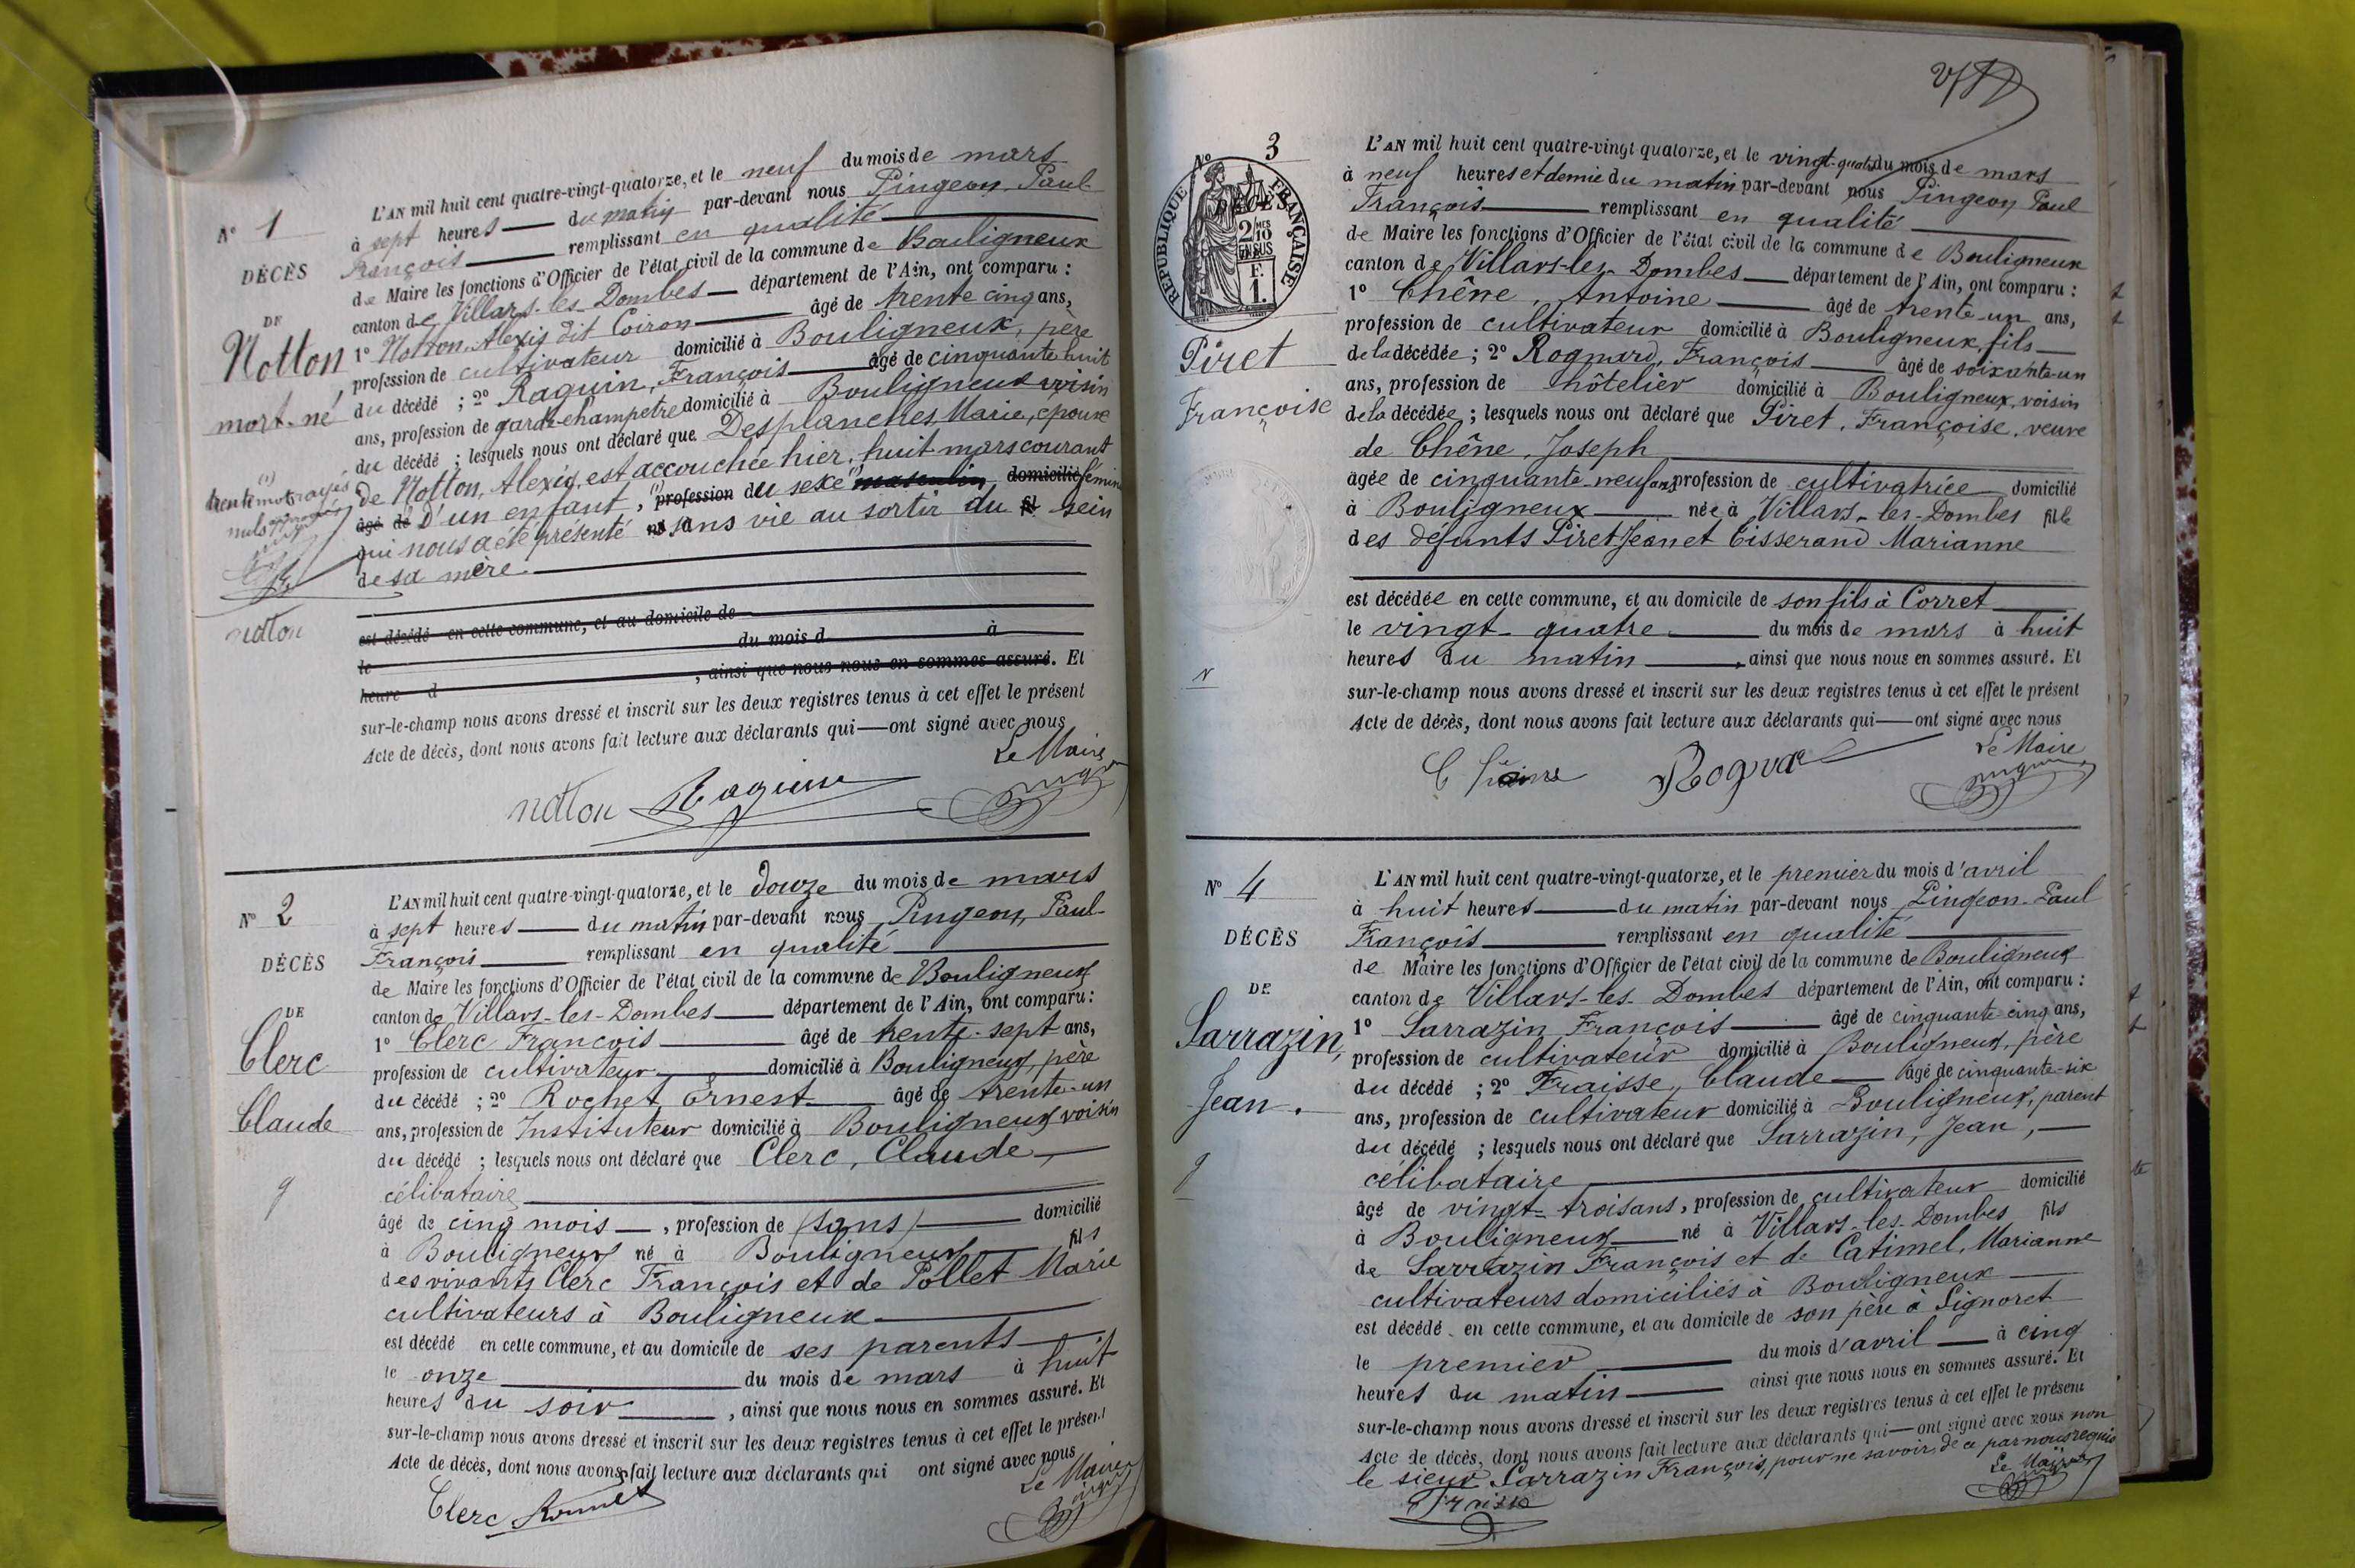 N° 1
DÉCÈS
DE
Notton
mort-né
(1) trente mots rayés
nuls approuvés
notton
L'AN mil huit cent quatre-vingt-quatorze, et le neuf du mois de mars
à sept heures — du matin par-devant nous Pingeon, Paul-
François — remplissant en qualité —
de Maire les fonctions d'Officier de l'état civil de la commune de Bouligneux
canton de Villars-les-Dombes — département de l'Ain, ont comparu :
1° Notton, Alexis dit Coiron — âgé de trente cinq ans,
profession de cultivateur domicilié à Bouligneux, père
du décédé ; 2° Raguin, François — âgé de cinquante huit
ans, profession de garde-champetre domicilié à Bouligneux voisin
du décédé ; lesquels nous ont déclaré que Desplanches, Marie, épouse
de Notton, Alexis, est accouchée hier, huit mars courant
âgé de D'un enfant, (1) profession du sexe masculin domicilié féminin
qui nous a été présenté sans vie au sortir du sein
de sa mère. —
est décédé en cette commune, et au domicile de
le du mois d à
heure d , ainsi que nous nous en sommes assuré. Et
sur-le-champ nous avons dressé et inscrit sur les deux registres tenus à cet effet le présent
Acte de décès, dont nous avons fait lecture aux déclarants qui — ont signé avec nous
Le Maire
notton Raguin
N° 2
DÉCÈS
DE
Clerc
Claude
L'AN mil huit cent quatre-vingt-quatorze, et le douze du mois de mars
à sept heures — du matin par-devant nous Pingeon, Paul-
François — remplissant en qualité —
de Maire les fonctions d'Officier de l'état civil de la commune de Bouligneux
canton de Villars-les-Dombes — département de l'Ain, ont comparu :
1° Clerc François — âgé de trente-sept ans,
profession de cultivateur — domicilié à Bouligneux, père
du décédé ; 2° Rochet Ernest — âgé de trente-un
ans, profession de Instituteur domicilié à Bouligneux voisin
du décédé ; lesquels nous ont déclaré que Clerc, Claude, —
célibataire —
âgé de cinq mois —, profession de (sans) — domicilié
à Bouligneux né à Bouligneux — fils
des vivants Clerc François et de Pollet Marie
cultivateurs à Bouligneux. —
est décédé en cette commune, et au domicile de ses parents —
le onze — du mois de mars à huit
heures du soir —, ainsi que nous nous en sommes assuré. Et
sur-le-champ nous avons dressé et inscrit sur les deux registres tenus à cet effet le présent
Acte de décès, dont nous avons fait lecture aux déclarants qui ont signé avec nous
Le Maire
Clerc
N° 3
RÉPUBLIQUE FRANÇAISE
DÉCÈS
2 MES
2/10 EN SUS
F. 1.
Piret
Françoise
L'AN mil huit cent quatre-vingt quatorze, et le vingt-quatre du mois de mars
à neuf heures et demie du matin par-devant nous Pingeon Paul
François — remplissant en qualité —
de Maire les fonctions d'Officier de l'état civil de la commune de Bouligneux
canton de Villars-les-Dombes — département de l'Ain, ont comparu :
1° Chêne, Antoine — âgé de trente-un ans,
profession de cultivateur domicilié à Bouligneux, fils —
de la décédée ; 2° Rognard, François — âgé de soixante-un
ans, profession de hôtelier domicilié à Bouligneux, voisin
de la décédée ; lesquels nous ont déclaré que Piret, Françoise, veuve
de Chêne, Joseph —
âgée de cinquante-neuf ans, profession de cultivatrice domicilié
à Bouligneux — née à Villars-les-Dombes fille
des défunts Piret Jean et Tisserand Marianne
est décédée en cette commune, et au domicile de son fils à Corret —
le vingt-quatre — du mois de mars à huit
heures du matin —, ainsi que nous nous en sommes assuré. Et
sur-le-champ nous avons dressé et inscrit sur les deux registres tenus à cet effet le présent
Acte de décès, dont nous avons fait lecture aux déclarants qui — ont signé avec nous
Le Maire
N° 4
DÉCÈS
DE
Sarrazin,
Jean.
L'AN mil huit cent quatre-vingt-quatorze, et le premier du mois d'avril
à huit heures — du matin par-devant nous Pingeon-Paul
François — remplissant en qualité —
de Maire les fonctions d'Officier de l'état civil de la commune de Bouligneux
canton de Villars-les-Dombes département de l'Ain, ont comparu :
1° Sarrazin François — âgé de cinquante-cinq ans,
profession de cultivateur domicilié à Bouligneux, père
du décédé ; 2° Fraisse, Claude — âgé de cinquante-six
ans, profession de cultivateur domicilié à Bouligneux, parent
du décédé ; lesquels nous ont déclaré que Sarrazin, Jean, —
célibataire —
âgé de vingt-trois ans, profession de cultivateur domicilié
à Bouligneux — né à Villars-les-Dombes fils
de Sarrazin François et de Catimel, Marianne
cultivateurs domiciliés à Bouligneux —
est décédé en cette commune, et au domicile de son père à Signoret
le premier — du mois d'avril — à cinq
heures du matin — ainsi que nous nous en sommes assuré. Et
sur-le-champ nous avons dressé et inscrit sur les deux registres tenus à cet effet le présent
Acte de décès, dont nous avons fait lecture aux déclarants qui — ont signé avec nous non
le sieur Sarrazin François, pour ne savoir, de ce par nous requis
Le Maire
Fraisse